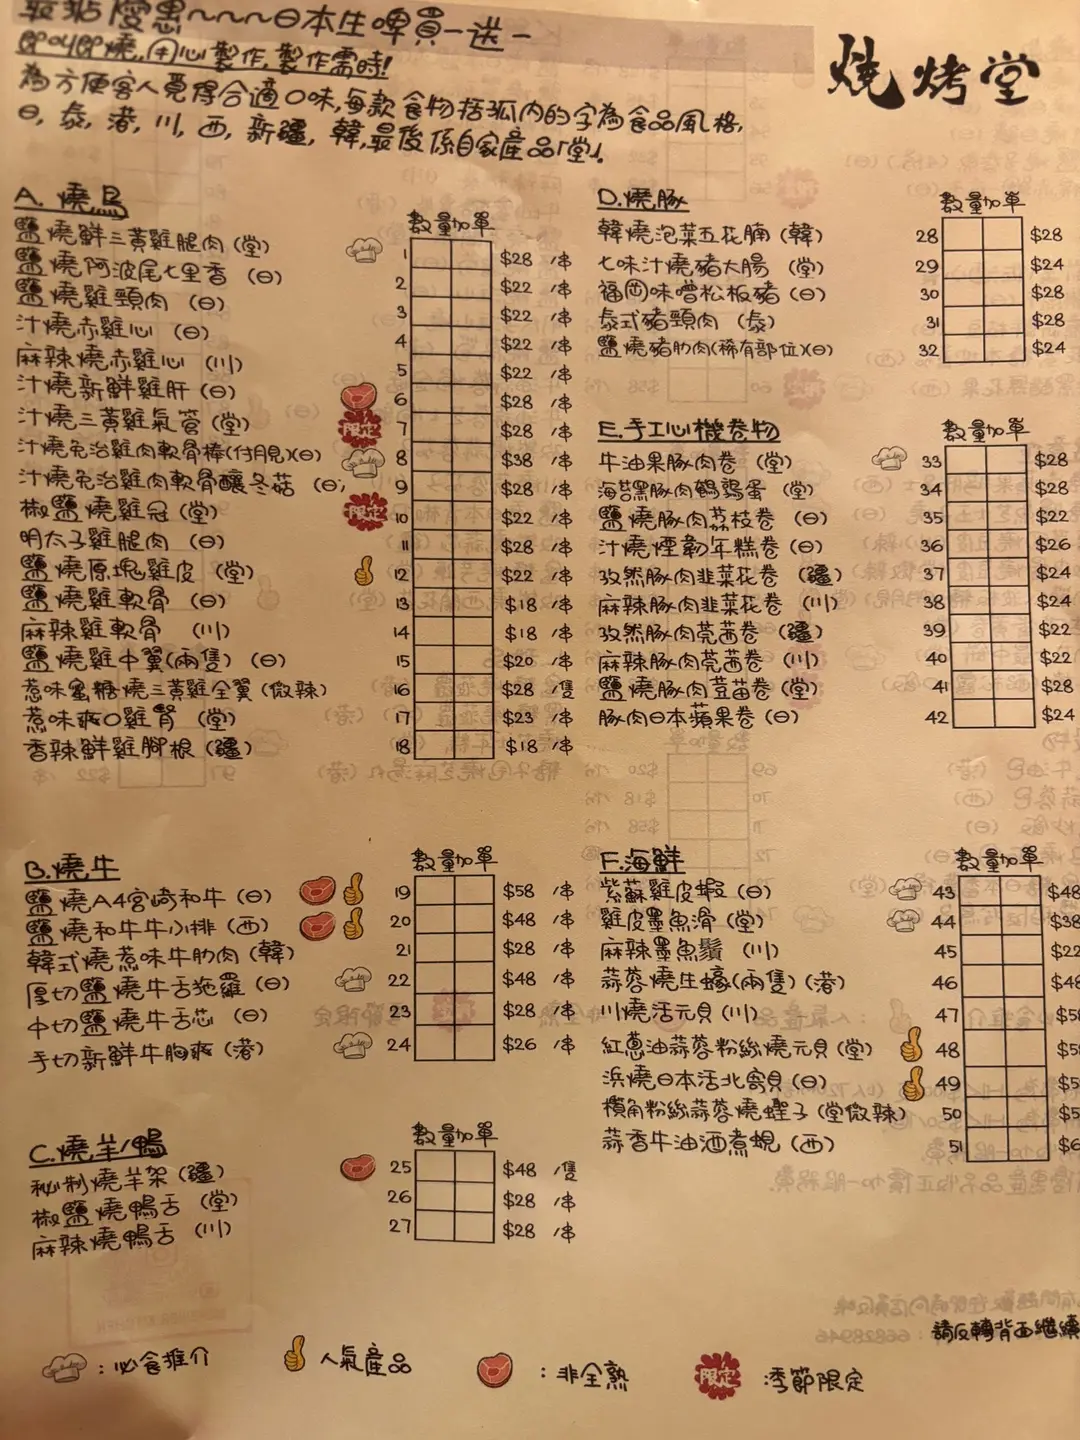 最新優惠~~~日本生啤買一送一
即叫即燒,用心製作,製作需時!
為方便客人覓得合適口味,每款食物括弧內的字為食品風格,
日,泰,港,川,西,新疆,韓,最後係自家產品「堂」.
燒烤堂
A. 燒鳥
數量 加單
鹽燒鮮三黃雞腿肉(堂) 1 $28 /串
鹽燒阿波尾七里香(日) 2 $22 /串
鹽燒雞頸肉(日) 3 $22 /串
汁燒赤雞心(日) 4 $22 /串
麻辣燒赤雞心(川) 5 $22 /串
汁燒新鮮雞肝(日) 6 $28 /串
汁燒三黃雞氣管(堂) 限定 7 $28 /串
汁燒免治雞肉軟骨棒(付月見)(日) 8 $38 /串
汁燒免治雞肉軟骨釀冬菇(日) 9 $28 /串
椒鹽燒雞冠(堂) 限定 10 $22 /串
明太子雞腿肉(日) 11 $28 /串
鹽燒原塊雞皮(堂) 12 $22 /串
鹽燒雞軟骨(日) 13 $18 /串
麻辣雞軟骨(川) 14 $18 /串
鹽燒雞中翼(兩隻)(日) 15 $20 /串
惹味蜜糖燒三黃雞全翼(微辣) 16 $28 /隻
惹味爽口雞腎(堂) 17 $23 /串
香辣鮮雞腳根(疆) 18 $18 /串
B.燒牛
數量 加單
鹽燒A4宮崎和牛(日) 19 $58 /串
鹽燒和牛牛小排(西) 20 $48 /串
韓式燒惹味牛肋肉(韓) 21 $28 /串
厚切鹽燒牛舌拖羅(日) 22 $48 /串
中切鹽燒牛舌芯(日) 23 $28 /串
手切新鮮牛胸爽(港) 24 $26 /串
C.燒羊/鴨
數量 加單
秘制燒羊架(疆) 25 $48 /隻
椒鹽燒鴨舌(堂) 26 $28 /串
麻辣燒鴨舌(川) 27 $28 /串
D.燒豚
數量 加單
韓燒泡菜五花腩(韓) 28 $28
七味汁燒豬大腸(堂) 29 $24
福岡味噌松板豬(日) 30 $28
泰式豬頸肉(泰) 31 $28
鹽燒豬肋肉(稀有部位)(日) 32 $24
E.手工心機卷物
數量 加單
牛油果豚肉卷(堂) 33 $28
海苔黑豚肉鵪鶉蛋(堂) 34 $28
鹽燒豚肉荔枝卷(日) 35 $22
汁燒煙韌年糕卷(日) 36 $26
孜然豚肉韭菜花卷(疆) 37 $24
麻辣豚肉韭菜花卷(川) 38 $24
孜然豚肉芫茜卷(疆) 39 $22
麻辣豚肉芫茜卷(川) 40 $22
鹽燒豚肉荳苗卷(堂) 41 $28
豚肉日本蘋果卷(日) 42 $24
F.海鮮
數量 加單
紫蘇雞皮蝦(日) 43 $48
雞皮墨魚滑(堂) 44 $38
麻辣墨魚鬚(川) 45 $22
蒜蓉燒生蠔(兩隻)(港) 46 $48
川燒活元貝(川) 47 $5
紅蔥油蒜蓉粉絲燒元貝(堂) 48 $5
浜燒日本活北寄貝(日) 49 $5
欖角粉絲蒜蓉燒蟶子(堂微辣) 50 $5
蒜香牛油酒煮蜆(西) 51 $6
請反轉背面繼續
:必食推介
人氣產品
:非全熟
限定 :季節限定